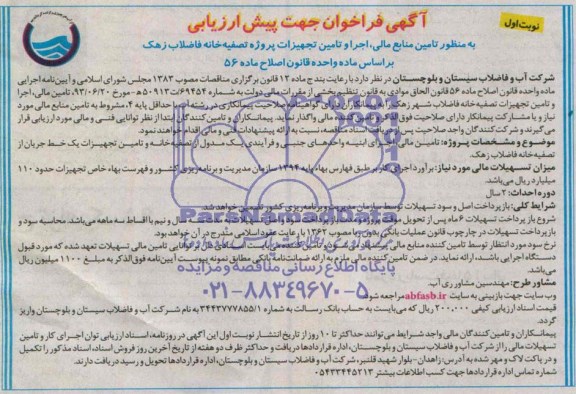 نوبت اول
آگهی فراخوان جهت پیش ارزیابی
به منظور تامین منابع مالی، اجرا و تامین تجهیزات پروژه تصفیه خانه فاضلاب زهک
براساس ماده واحده قانون اصلاح ماده ۵۶
شرکت آب و فاضلاب سیستان و بلوچستان در نظر دارد با رعایت بند ج ماده ۱۲ قانون برگزاری مناقصات مصوب ۱۳۸۳ مجلس شورای اسلامی و آیین‌نامه اجرایی
ماده واحده قانون اصلاح ماده ۵۶ قانون الحاق موادی به قانون تنظیم بخشی از مقررات مالی دولت به شماره ۶۹۴۵۴/ت۵۰۹۱۳ه مورخ ۹۳/۰۶/۲۰، تامین مالی، اجرا
و تامین تجهیزات تصفیه خانه فاضلاب شهر زهک را به پیمانکاران دارای گواهی صلاحیت پیمانکاری در رشته آب با حداقل پایه ۴، مشروط به تامین منابع مالی مورد
نیاز و یا مشارکت پیمانکار دارای صلاحیت فوق الذکر و تامین کننده مالی واگذار نماید. پیمانکاران و تامین کنندگان ابتدا از نظر توانایی فنی و مالی مورد ارزیابی قرار
می‌گیرند و شرکت کنندگان واجد صلاحیت پس از دریافت اسناد مناقصه، نسبت به ارائه پیشنهادات فنی و مالی اقدام خواهند نمود.
موضوع و مشخصات پروژه: تامین مالی، اجرای ابنیه واحدهای جنبی و فرآیندی یک مدول از تصفیه خانه و تامین تجهیزات یک خط جریان از
تصفیه خانه فاضلاب زهک.
میزان تسهیلات مالی مورد نیاز: برآورد اجرای کار بر طبق فهارس بهاء پایه ۱۳۹۴ سازمان مدیریت و برنامه ریزی کشور و فهرست بهاء خاص تجهیزات حدود ۱۱۰
میلیارد ریال می‌باشد.
دوره احداث: ۲ سال
شرایط کلی: بازپرداخت اصل و سود تسهیلات توسط سازمان مدیریت و برنامه ریزی کشور تضمین خواهد شد.
شروع بازپرداخت تسهیلات ۶ ماه پس از تحویل موقت پروژه سال و نیم با اقساط سه ماهه می‌باشد. محاسبه سود و
بازپرداخت تسهیلات در چارچوب قانون عملیات بانکی بدون ربا مصوب ۱۳۶۲ با رعایت عقود اسلامی مندرج در آن خواهد بود.
نرخ سود مورد انتظار توسط تامین کننده منابع مالی پیشنهاد تامین مالی تسهیلات تعهد شده که مورد قبول
دستگاه اجرایی باشد، ارائه نماید. در ضمن تامین کننده مالی ملزم به ارائه ضمانت‌نامه بانکی مطابق نمونه پیوست آیین‌نامه فوق الذکر به مبلغ ۱۱۰۰ میلیون ریال
می‌باشد.
مشاور طرح: مهندسین مشاور ری آب.
وب سایت جهت بازبینی به سایت abfasb.ir مراجعه شود
قیمت اسناد ارزیابی کیفی ۲۰۰,۰۰۰ ریال که می‌بایست به حساب بانک رسالت به شماره ۳۴۴۳۷۷۷۸۵۵/۱ به نام شرکت آب و فاضلاب سیستان و بلوچستان واریز
گردد.
پیمانکاران و تامین کنندگان مالی واجد شرایط می‌توانند حداکثر تا ۱۰ روز از تاریخ انتشار نوبت اول این آگهی در روزنامه، اسناد ارزیابی توان اجرای کار و تامین
تسهیلات مالی را از شرکت آب و فاضلاب سیستان و بلوچستان، اداره قراردادها دریافت و حداکثر ظرف دو هفته از تاریخ آخرین روز فروش اسناد، اسناد مذکور را تکمیل
و در پاکت لاک و مهر شده به آدرس: زاهدان-بلوار شهید قلنبر، شرکت آب و فاضلاب سیستان و بلوچستان، اداره قراردادها تحویل و رسید دریافت دارند.
شماره تماس اداره قراردادها جهت کسب اطلاعات بیشتر ۰۵۴۳۳۴۴۵۲۱۳
ParsNamadData
پایگاه اطلاع رسانی مناقصه و مزایده
۰۲۱-۸۸۳۴۹۶۷۰-۵